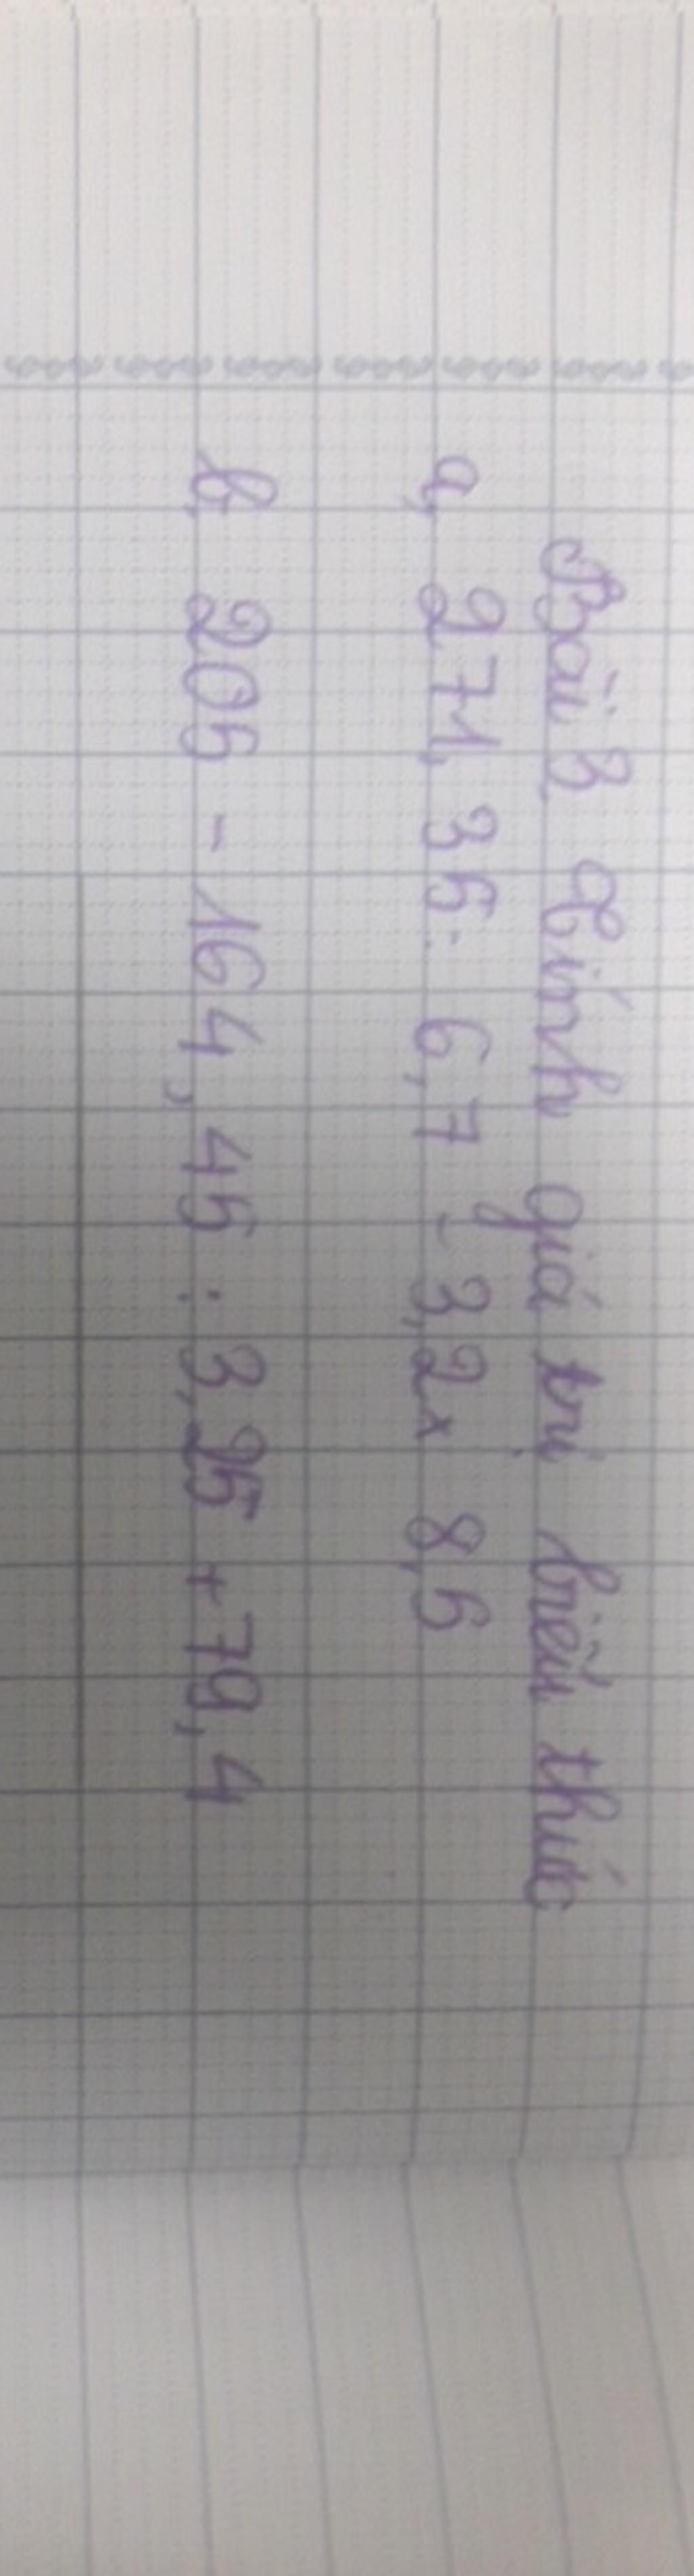 Bài 3. Tính giá trị biểu thức
a, 271,35 : 6,7 - 3,2 x 8,5
b, 205 - 164,45 : 3,25 + 79,4